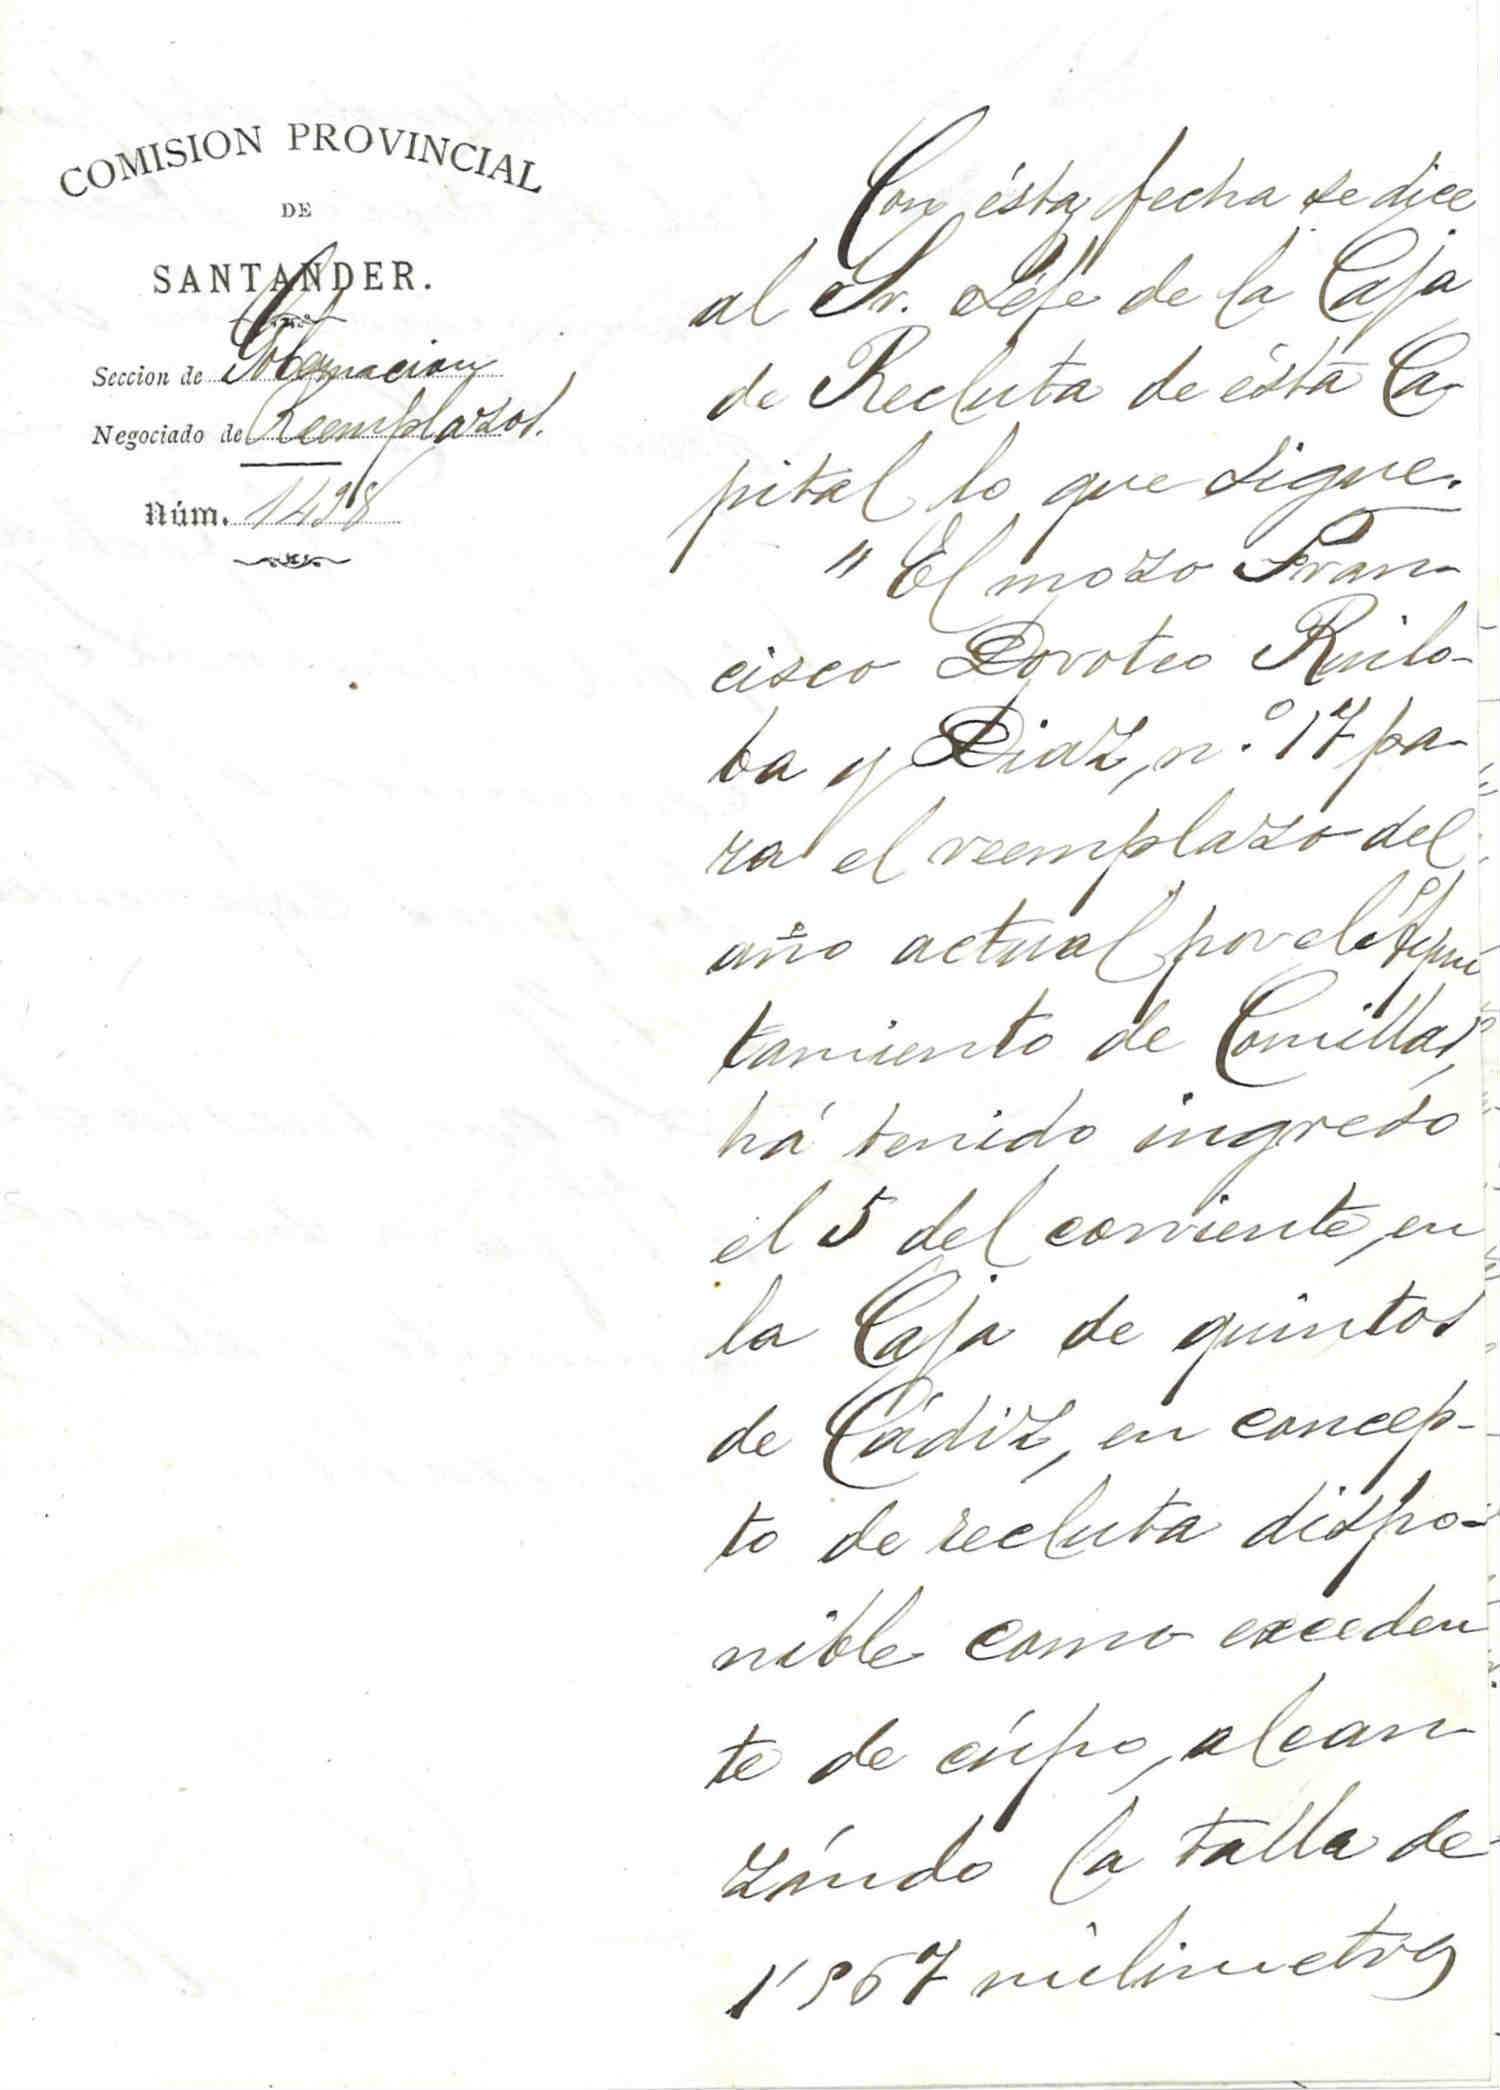 COMISION PROVINCIAL
DE
SANTANDER.
Seccion de Gobernacion
Negociado de Reemplazos.
Núm. 1498
Con ésta fecha se dice
al Sr. Jefe de la Caja
de Recluta de ésta Ca-
pital lo que sigue.
" El mozo Fran-
cisco Doroteo Ruilo-
ba y Diaz, n.º 17 pa-
ra el reemplazo del
año actual por el Ayun
tamiento de Comillas,
há tenido ingreso
el 5 del corriente, en
la Caja de quintos
de Cádiz, en concep-
to de recluta dispo-
nible como exceden
te de cúpo, alcan-
zándo la talla de
1'567 milimetros